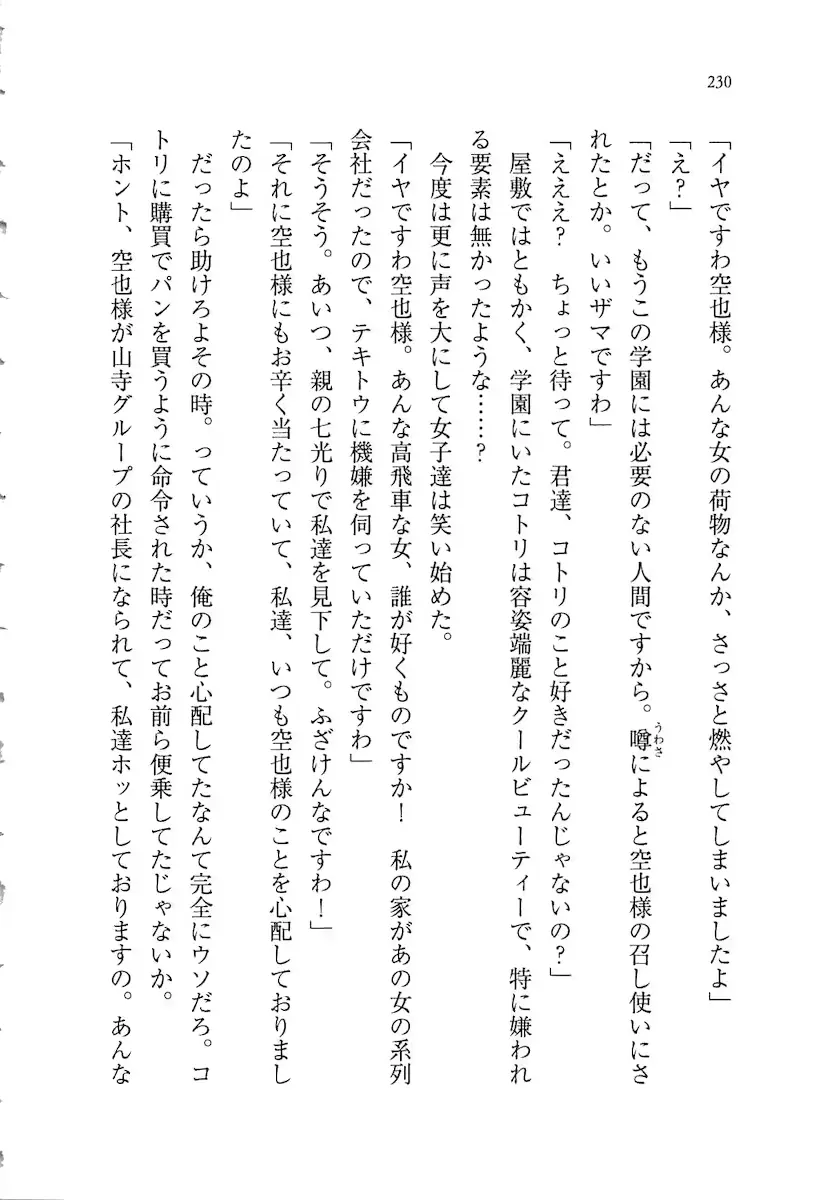 230
「イヤですわ空也様。あんな女の荷物なんか、さっさと燃やしてしまいましたよ」
「え？」
「だって、もうこの学園には必要のない人間ですから。噂によると空也様の召し使いにさ
れたとか。いいザマですわ」
「えええ？　ちょっと待って。君達、コトリのこと好きだったんじゃないの？」
　屋敷ではともかく、学園にいたコトリは容姿端麗なクールビューティーで、特に嫌われ
る要素は無かったような……？
　今度は更に声を大にして女子達は笑い始めた。
「イヤですわ空也様。あんな高飛車な女、誰が好くものですか！　私の家があの女の系列
会社だったので、テキトウに機嫌を伺っていただけですわ」
「そうそう。あいつ、親の七光りで私達を見下して。ふざけんなですわ！」
「それに空也様にもお辛く当たっていて、私達、いつも空也様のことを心配しておりまし
たのよ」
　だったら助けろよその時。っていうか、俺のこと心配してたなんて完全にウソだろ。コ
トリに購買でパンを買うように命令された時だってお前ら便乗してたじゃないか。
「ホント、空也様が山寺グループの社長になられて、私達ホッとしておりますの。あんな
うわさ